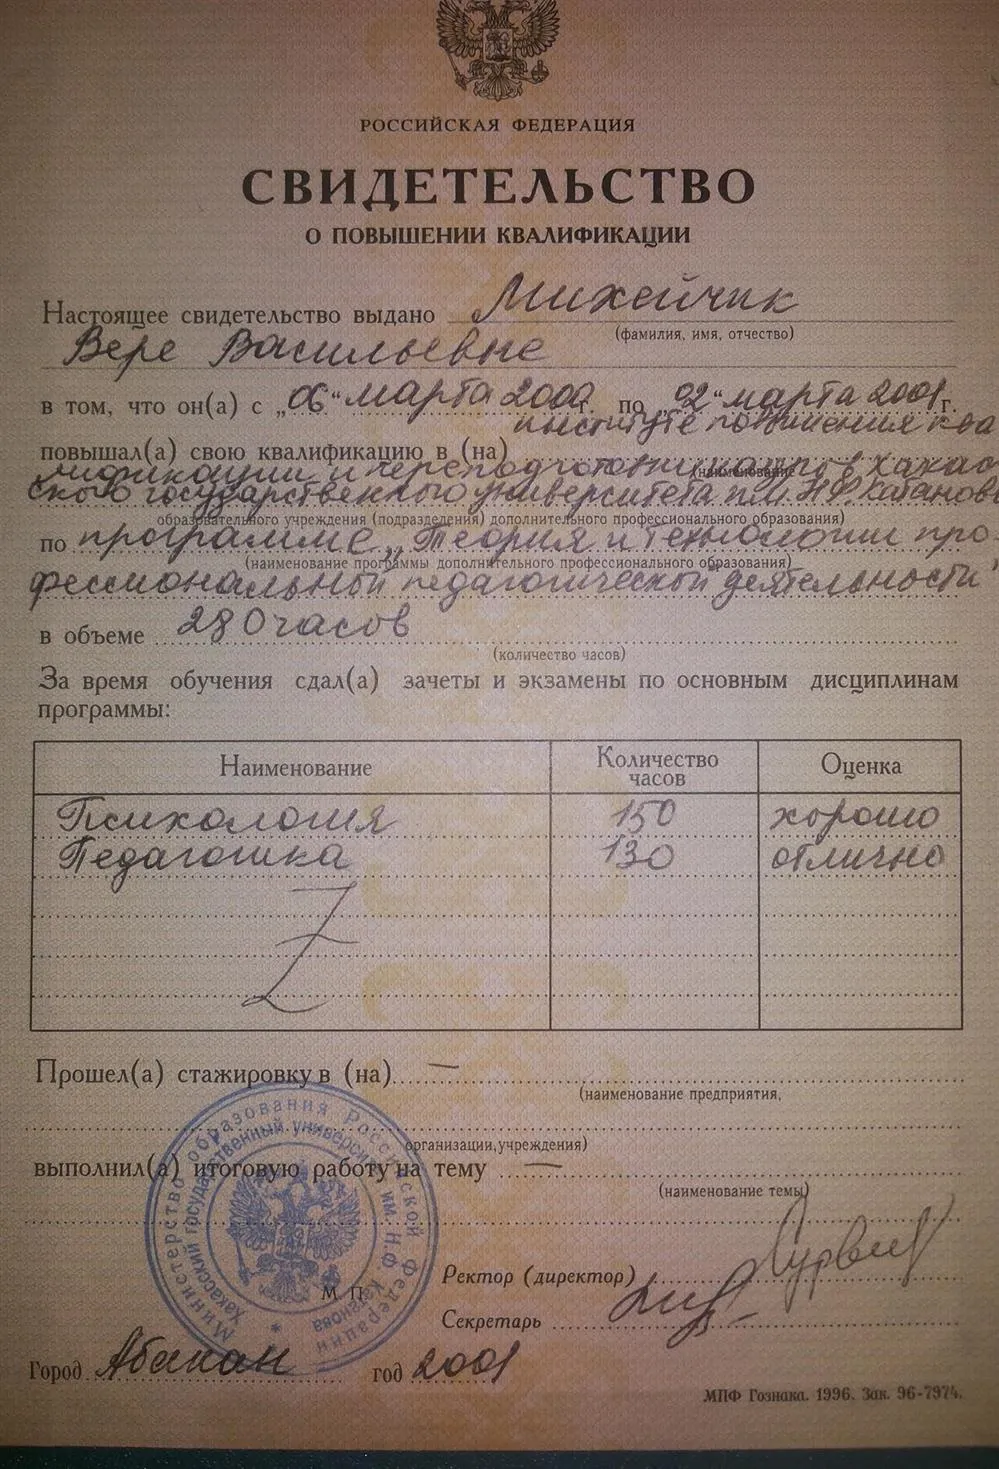 РОССИЙСКАЯ ФЕДЕРАЦИЯ
СВИДЕТЕЛЬСТВО
О ПОВЫШЕНИИ КВАЛИФИКАЦИИ
Настоящее свидетельство выдано Михейчик
(фамилия, имя, отчество)
Вере Васильевне
в том, что он(а) с „06" марта 2000 г. по „02" марта 2001 г.
институте повышения ква
повышал(а) свою квалификацию в (на)
(наименование
лификации и переподготовки кадров Хакас
ского государственного университета им. Н.Ф. Катанова
образовательного учреждения (подразделения) дополнительного профессионального образования)
по программе „Теория и технологии про-
(наименование программы дополнительного профессионального образования)
фессиональной педагогической деятельности"
в объеме 280 часов
(количество часов)
За время обучения сдал(а) зачеты и экзамены по основным дисциплинам
программы:
Наименование Количество часов Оценка
Психология 150 хорошо
Педагогика 130 отлично
Z
Прошел(а) стажировку в (на) —
(наименование предприятия,
организации, учреждения)
выполнил(а) итоговую работу на тему —
(наименование темы)
Министерство образования Российской Федерации
Хакасский государственный университет им. Н.Ф. Катанова
М. П.
Ректор (директор)
Секретарь
Город Абакан год 2001
МПФ Гознака. 1996. Зак. 96-7974.